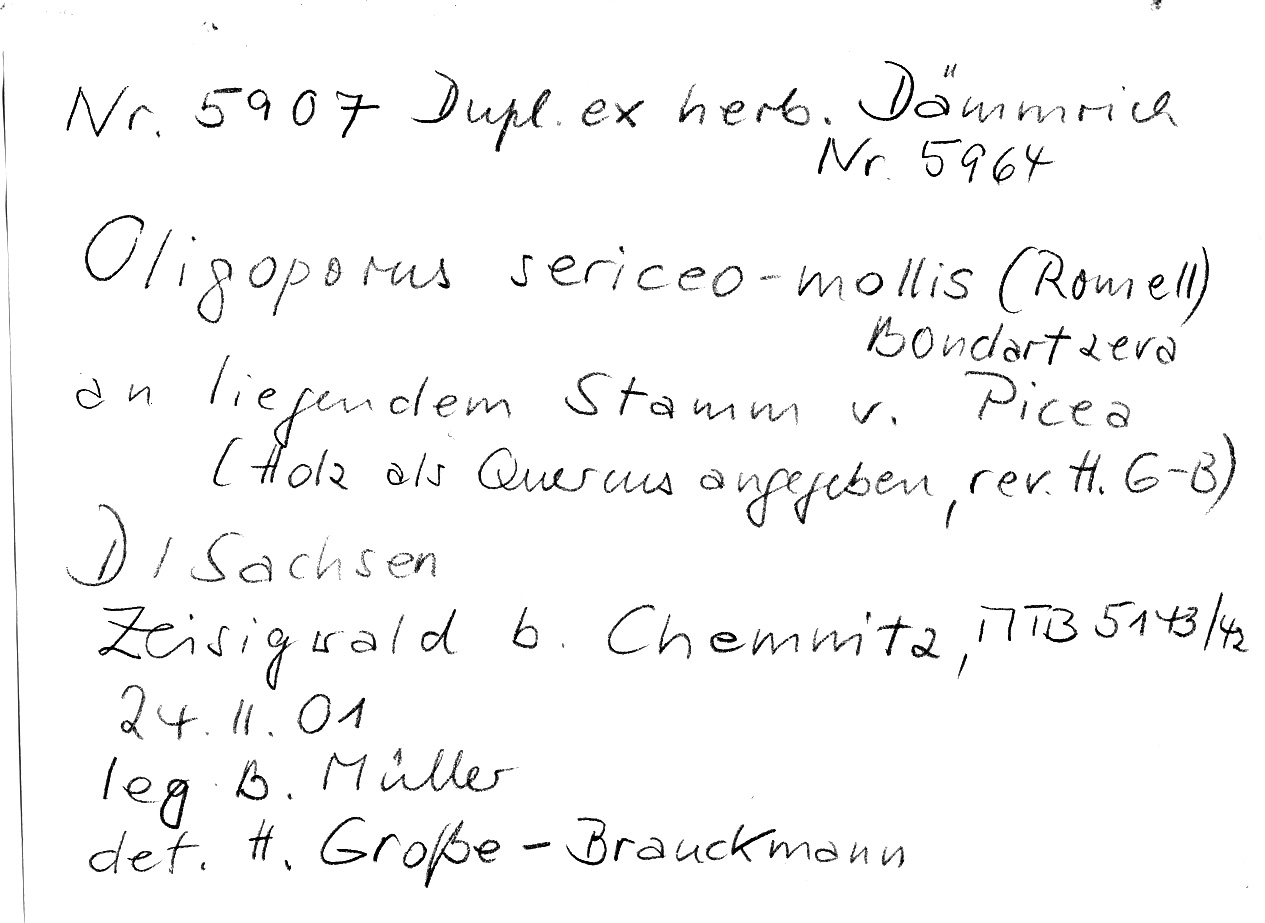 Nr. 5907 Dupl. ex herb. Dämmrich
Nr. 5964
Oligoporus sericeo-mollis (Romell)
Bondartzeva
an liegendem Stamm v. Picea
(Holz als Quercus angegeben, rev. H. G-B)
D / Sachsen
Zeisigwald b. Chemnitz, MTB 5143/42
24. 11. 01
leg B. Müller
det. H. Große-Brauckmann